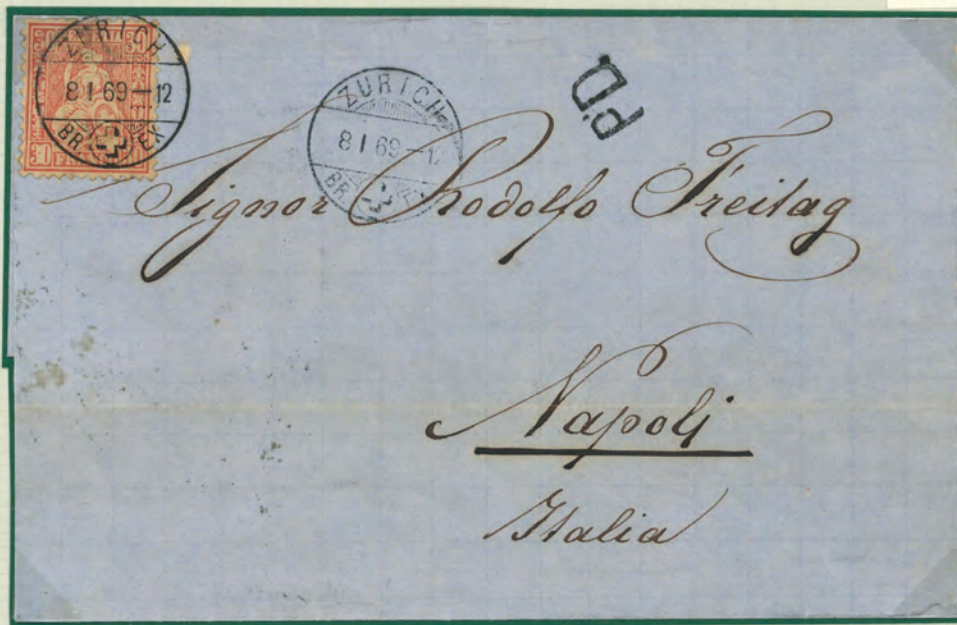 30 30
ZURICH
8 I 69-12
BR. EX
30
ZURICH
8 I 69-12
BR.
P.D.
Signor Rodolfo Freitag
Napoli
Italia